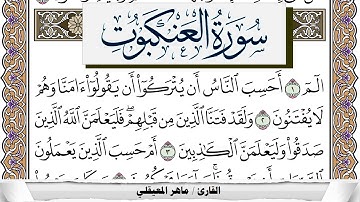 سورة العنكبوت
الٓمٓ ١ أَحَسِبَ ٱلنَّاسُ أَن يُتْرَكُوٓا۟ أَن يَقُولُوٓا۟ ءَامَنَّا وَهُمْ
لَا يُفْتَنُونَ ٢ وَلَقَدْ فَتَنَّا ٱلَّذِينَ مِن قَبْلِهِمْ ۖ فَلَيَعْلَمَنَّ ٱللَّهُ ٱلَّذِينَ
صَدَقُوا۟ وَلَيَعْلَمَنَّ ٱلْكَـٰذِبِينَ ٣ أَمْ حَسِبَ ٱلَّذِينَ يَعْمَلُونَ
القارئ / ماهر المعيقلي